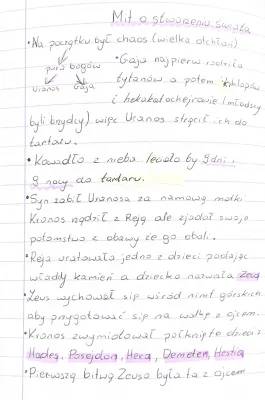 Mit o stworzeniu świata
• Na początku był chaos (wielka otchłań)
para bogów
Uranos Gaja
• Gaja najpierw rodziła
tytanów a potem cyklopów
i hekatonchejrowie (młodzsy
byli brzydcy) więc Uranos strącił ich do
tartaru.
• Kowadło z nieba leciało by 9 dni i
9 nocy do tartaru.
• Syn zabił Uranosa za namową matki
Kronos rządził z Reją ale zjadał swoje
potomstwo z obawy że go obali.
• Reja uratowała jedno z dzieci podając
władcy kamień a dziecko nazwała Zeus
• Zeus wychował się wśród nimf górskich
aby przygotować się na walkę z ojcem.
• Kronos zwymiotował połknięte dzieci:
Hades, Posejdon, Hera, Demeter, Hestia
• Pierwszą bitwą Zeusa była ta z ojcem